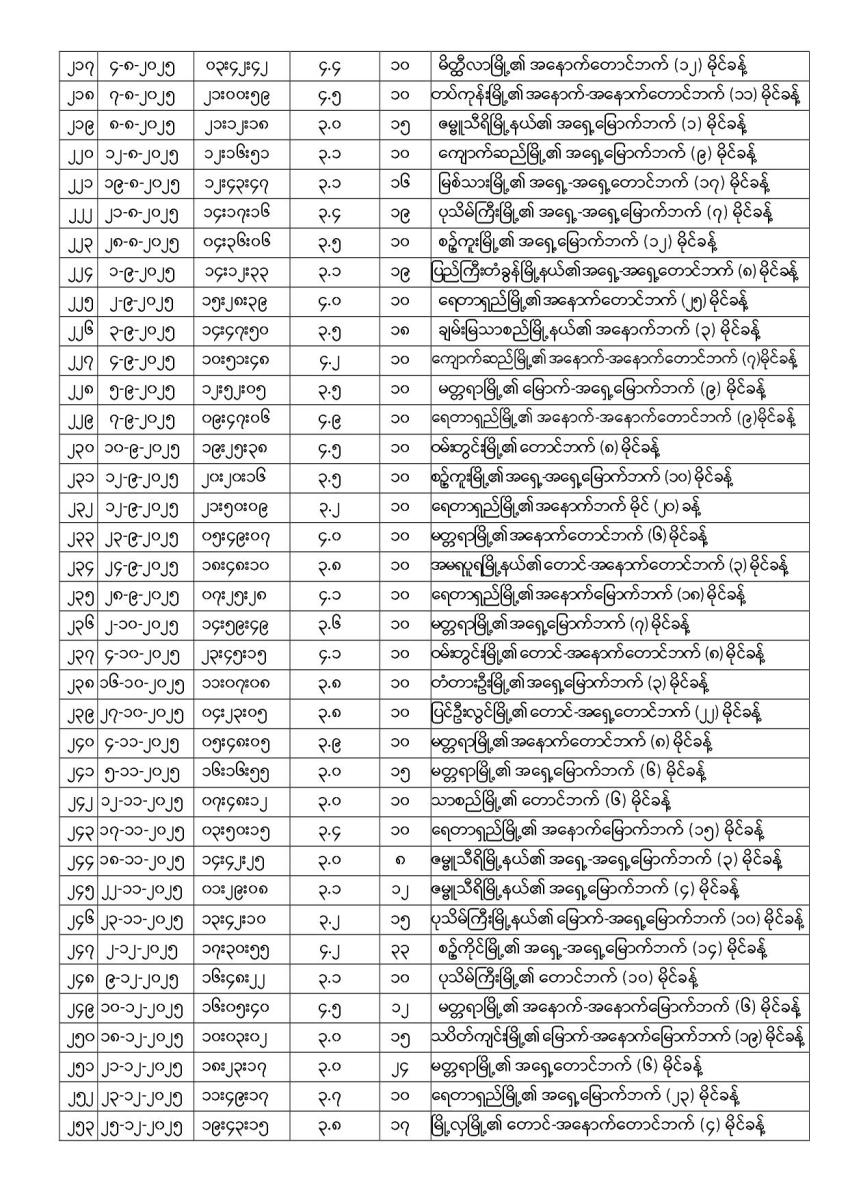 ၂၁၇ ၄-၈-၂၀၂၅ ၀၃း၄၂း၄၂ ၄.၄ ၁၀ မိတ္ထီလာမြို့၏ အနောက်တောင်ဘက် (၁၂) မိုင်ခန့်
၂၁၈ ၇-၈-၂၀၂၅ ၂၁း၀၀း၅၉ ၄.၅ ၁၀ တပ်ကုန်းမြို့၏ အနောက်-အနောက်တောင်ဘက် (၁၁) မိုင်ခန့်
၂၁၉ ၈-၈-၂၀၂၅ ၂၁း၁၂း၁၈ ၃.၀ ၁၅ ဇမ္ဗူသီရိမြို့နယ်၏ အရှေ့မြောက်ဘက် (၁) မိုင်ခန့်
၂၂၀ ၁၂-၈-၂၀၂၅ ၁၂း၁၆း၅၁ ၃.၁ ၁၀ ကျောက်ဆည်မြို့၏ အရှေ့မြောက်ဘက် (၉) မိုင်ခန့်
၂၂၁ ၁၉-၈-၂၀၂၅ ၁၂း၄၃း၄၇ ၃.၁ ၁၆ မြစ်သားမြို့၏ အရှေ့-အရှေ့တောင်ဘက် (၁၇) မိုင်ခန့်
၂၂၂ ၂၁-၈-၂၀၂၅ ၁၄း၁၇း၁၆ ၃.၄ ၁၉ ပုသိမ်ကြီးမြို့၏ အရှေ့-အရှေ့မြောက်ဘက် (၇) မိုင်ခန့်
၂၂၃ ၂၈-၈-၂၀၂၅ ၀၄း၃၆း၀၆ ၃.၅ ၁၀ စဉ့်ကူးမြို့၏ အရှေ့မြောက်ဘက် (၁၂) မိုင်ခန့်
၂၂၄ ၁-၉-၂၀၂၅ ၁၄း၁၂း၃၃ ၃.၁ ၁၉ ပြည်ကြီးတံခွန်မြို့နယ်၏အရှေ့-အရှေ့တောင်ဘက် (၈) မိုင်ခန့်
၂၂၅ ၂-၉-၂၀၂၅ ၁၅း၂၈း၃၉ ၄.၀ ၁၀ ရေတာရှည်မြို့၏ အနောက်တောင်ဘက် (၂၅) မိုင်ခန့်
၂၂၆ ၃-၉-၂၀၂၅ ၁၄း၄၇း၅၀ ၃.၅ ၁၈ ချမ်းမြသာစည်မြို့နယ်၏ အနောက်ဘက် (၃) မိုင်ခန့်
၂၂၇ ၄-၉-၂၀၂၅ ၁၀း၅၁း၄၈ ၄.၂ ၁၀ ကျောက်ဆည်မြို့၏ အနောက်-အနောက်တောင်ဘက် (၇)မိုင်ခန့်
၂၂၈ ၅-၉-၂၀၂၅ ၁၂း၅၂း၀၅ ၃.၅ ၁၀ မတ္တရာမြို့၏ မြောက်-အရှေ့မြောက်ဘက် (၉) မိုင်ခန့်
၂၂၉ ၇-၉-၂၀၂၅ ၀၉း၄၇း၀၆ ၄.၉ ၁၀ ရေတာရှည်မြို့၏ အနောက်-အနောက်တောင်ဘက် (၉)မိုင်ခန့်
၂၃၀ ၁၀-၉-၂၀၂၅ ၁၉း၂၅း၃၈ ၄.၅ ၁၀ ဝမ်းတွင်းမြို့၏ တောင်ဘက် (၈) မိုင်ခန့်
၂၃၁ ၁၂-၉-၂၀၂၅ ၂၀း၂၀း၁၆ ၃.၅ ၁၀ စဉ့်ကူးမြို့၏ အရှေ့-အရှေ့မြောက်ဘက် (၁၀) မိုင်ခန့်
၂၃၂ ၁၂-၉-၂၀၂၅ ၂၁း၅၀း၀၉ ၃.၂ ၁၀ ရေတာရှည်မြို့၏ အနောက်ဘက် မိုင် (၂၀) ခန့်
၂၃၃ ၂၃-၉-၂၀၂၅ ၀၅း၄၉း၀၇ ၄.၀ ၁၀ မတ္တရာမြို့၏ အနောက်ဘက် (၆) မိုင်ခန့်
၂၃၄ ၂၄-၉-၂၀၂၅ ၁၈း၄၈း၁၀ ၃.၈ ၁၀ အမရပူရမြို့နယ်၏ တောင်-အနောက်တောင်ဘက် (၃) မိုင်ခန့်
၂၃၅ ၂၈-၉-၂၀၂၅ ၀၇း၂၅း၂၈ ၄.၁ ၁၀ ရေတာရှည်မြို့၏ အနောက်မြောက်ဘက် (၁၈) မိုင်ခန့်
၂၃၆ ၂-၁၀-၂၀၂၅ ၁၄း၅၉း၄၉ ၃.၆ ၁၀ မတ္တရာမြို့၏ အရှေ့မြောက်ဘက် (၇) မိုင်ခန့်
၂၃၇ ၄-၁၀-၂၀၂၅ ၂၃း၄၅း၁၅ ၄.၁ ၁၀ ဝမ်းတွင်းမြို့၏ တောင်-အနောက်တောင်ဘက် (၈) မိုင်ခန့်
၂၃၈ ၁၆-၁၀-၂၀၂၅ ၁၁း၀၇း၀၈ ၃.၈ ၁၀ တံတားဦးမြို့၏ အရှေ့မြောက်ဘက် (၃) မိုင်ခန့်
၂၃၉ ၂၇-၁၀-၂၀၂၅ ၀၄း၂၃း၀၅ ၃.၈ ၁၀ ပြင်ဦးလွင်မြို့၏ တောင်-အရှေ့တောင်ဘက် (၂၂) မိုင်ခန့်
၂၄၀ ၄-၁၁-၂၀၂၅ ၀၅း၄၈း၀၅ ၃.၉ ၁၀ မတ္တရာမြို့၏ အနောက်တောင်ဘက် (၈) မိုင်ခန့်
၂၄၁ ၅-၁၁-၂၀၂၅ ၁၆း၁၆း၅၅ ၃.၀ ၁၅ မတ္တရာမြို့၏ အရှေ့မြောက်ဘက် (၆) မိုင်ခန့်
၂၄၂ ၁၂-၁၁-၂၀၂၅ ၀၇း၄၈း၁၂ ၃.၀ ၁၀ သာစည်မြို့၏ တောင်ဘက် (၆) မိုင်ခန့်
၂၄၃ ၁၇-၁၁-၂၀၂၅ ၀၃း၅၀း၁၅ ၃.၄ ၁၀ ရေတာရှည်မြို့၏ အနောက်မြောက်ဘက် (၁၅) မိုင်ခန့်
၂၄၄ ၁၈-၁၁-၂၀၂၅ ၁၄း၄၂း၂၅ ၃.၀ ၈ ဇမ္ဗူသီရိမြို့နယ်၏ အရှေ့-အရှေ့မြောက်ဘက် (၃) မိုင်ခန့်
၂၄၅ ၂၂-၁၁-၂၀၂၅ ၀၁း၂၉း၀၈ ၃.၁ ၁၂ ဇမ္ဗူသီရိမြို့နယ်၏ အရှေ့မြောက်ဘက် (၄) မိုင်ခန့်
၂၄၆ ၂၃-၁၁-၂၀၂၅ ၁၃း၄၂း၁၀ ၃.၂ ၁၅ ပုသိမ်ကြီးမြို့နယ်၏ မြောက်-အရှေ့မြောက်ဘက် (၁၀) မိုင်ခန့်
၂၄၇ ၂-၁၂-၂၀၂၅ ၁၇း၃၀း၅၅ ၄.၂ ၃၃ စဉ့်ကိုင်မြို့၏ အရှေ့-အရှေ့မြောက်ဘက် (၁၄) မိုင်ခန့်
၂၄၈ ၉-၁၂-၂၀၂၅ ၁၆း၄၈း၂၂ ၃.၁ ၁၀ ပုသိမ်ကြီးမြို့၏ တောင်ဘက် (၁၀) မိုင်ခန့်
၂၄၉ ၁၀-၁၂-၂၀၂၅ ၁၆း၀၅း၄၀ ၄.၅ ၁၂ မတ္တရာမြို့၏ အနောက်-အနောက်မြောက်ဘက် (၆) မိုင်ခန့်
၂၅၀ ၁၈-၁၂-၂၀၂၅ ၁၀း၀၃း၀၂ ၃.၀ ၁၅ သပိတ်ကျင်းမြို့၏ မြောက်-အနောက်မြောက်ဘက် (၁၉) မိုင်ခန့်
၂၅၁ ၂၁-၁၂-၂၀၂၅ ၁၈း၂၃း၁၇ ၃.၀ ၂၄ မတ္တရာမြို့၏ အရှေ့တောင်ဘက် (၆) မိုင်ခန့်
၂၅၂ ၂၃-၁၂-၂၀၂၅ ၁၁း၄၉း၁၇ ၃.၇ ၁၀ ရေတာရှည်မြို့၏ အရှေ့မြောက်ဘက် (၂၃) မိုင်ခန့်
၂၅၃ ၂၅-၁၂-၂၀၂၅ ၁၉း၄၃း၁၅ ၃.၈ ၁၇ မြို့လှမြို့၏ တောင်-အနောက်တောင်ဘက် (၄) မိုင်ခန့်